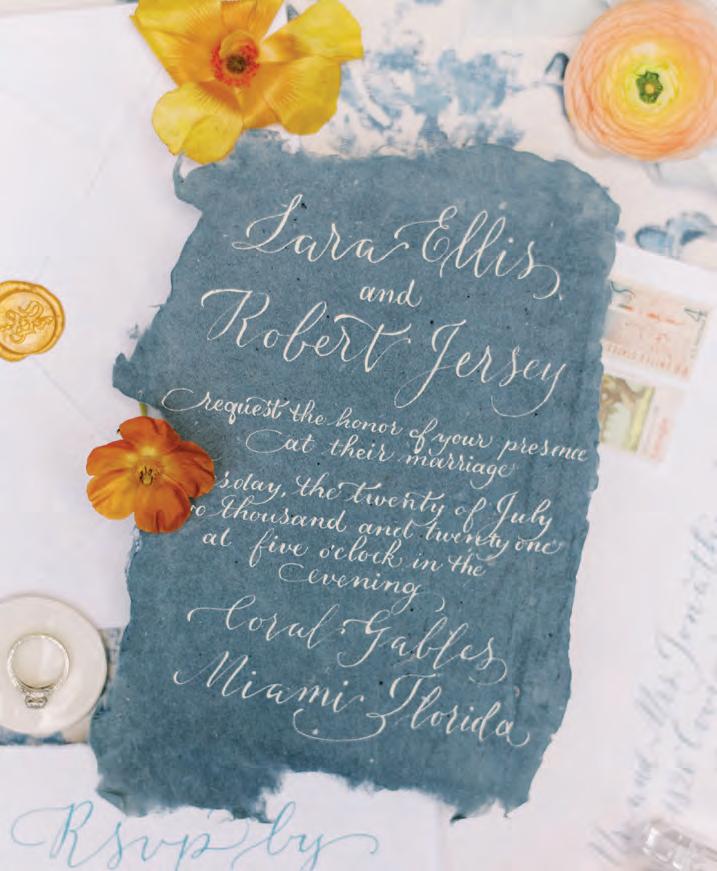 Lara Ellis
and
Robert Jersey
request the honor of your presence
at their marriage
sday, the twenty of July
o thousand and twenty one
at five o'clock in the
evening
Coral Gables
Miami Florida
Rsvp by
and Mrs Jonath
1820